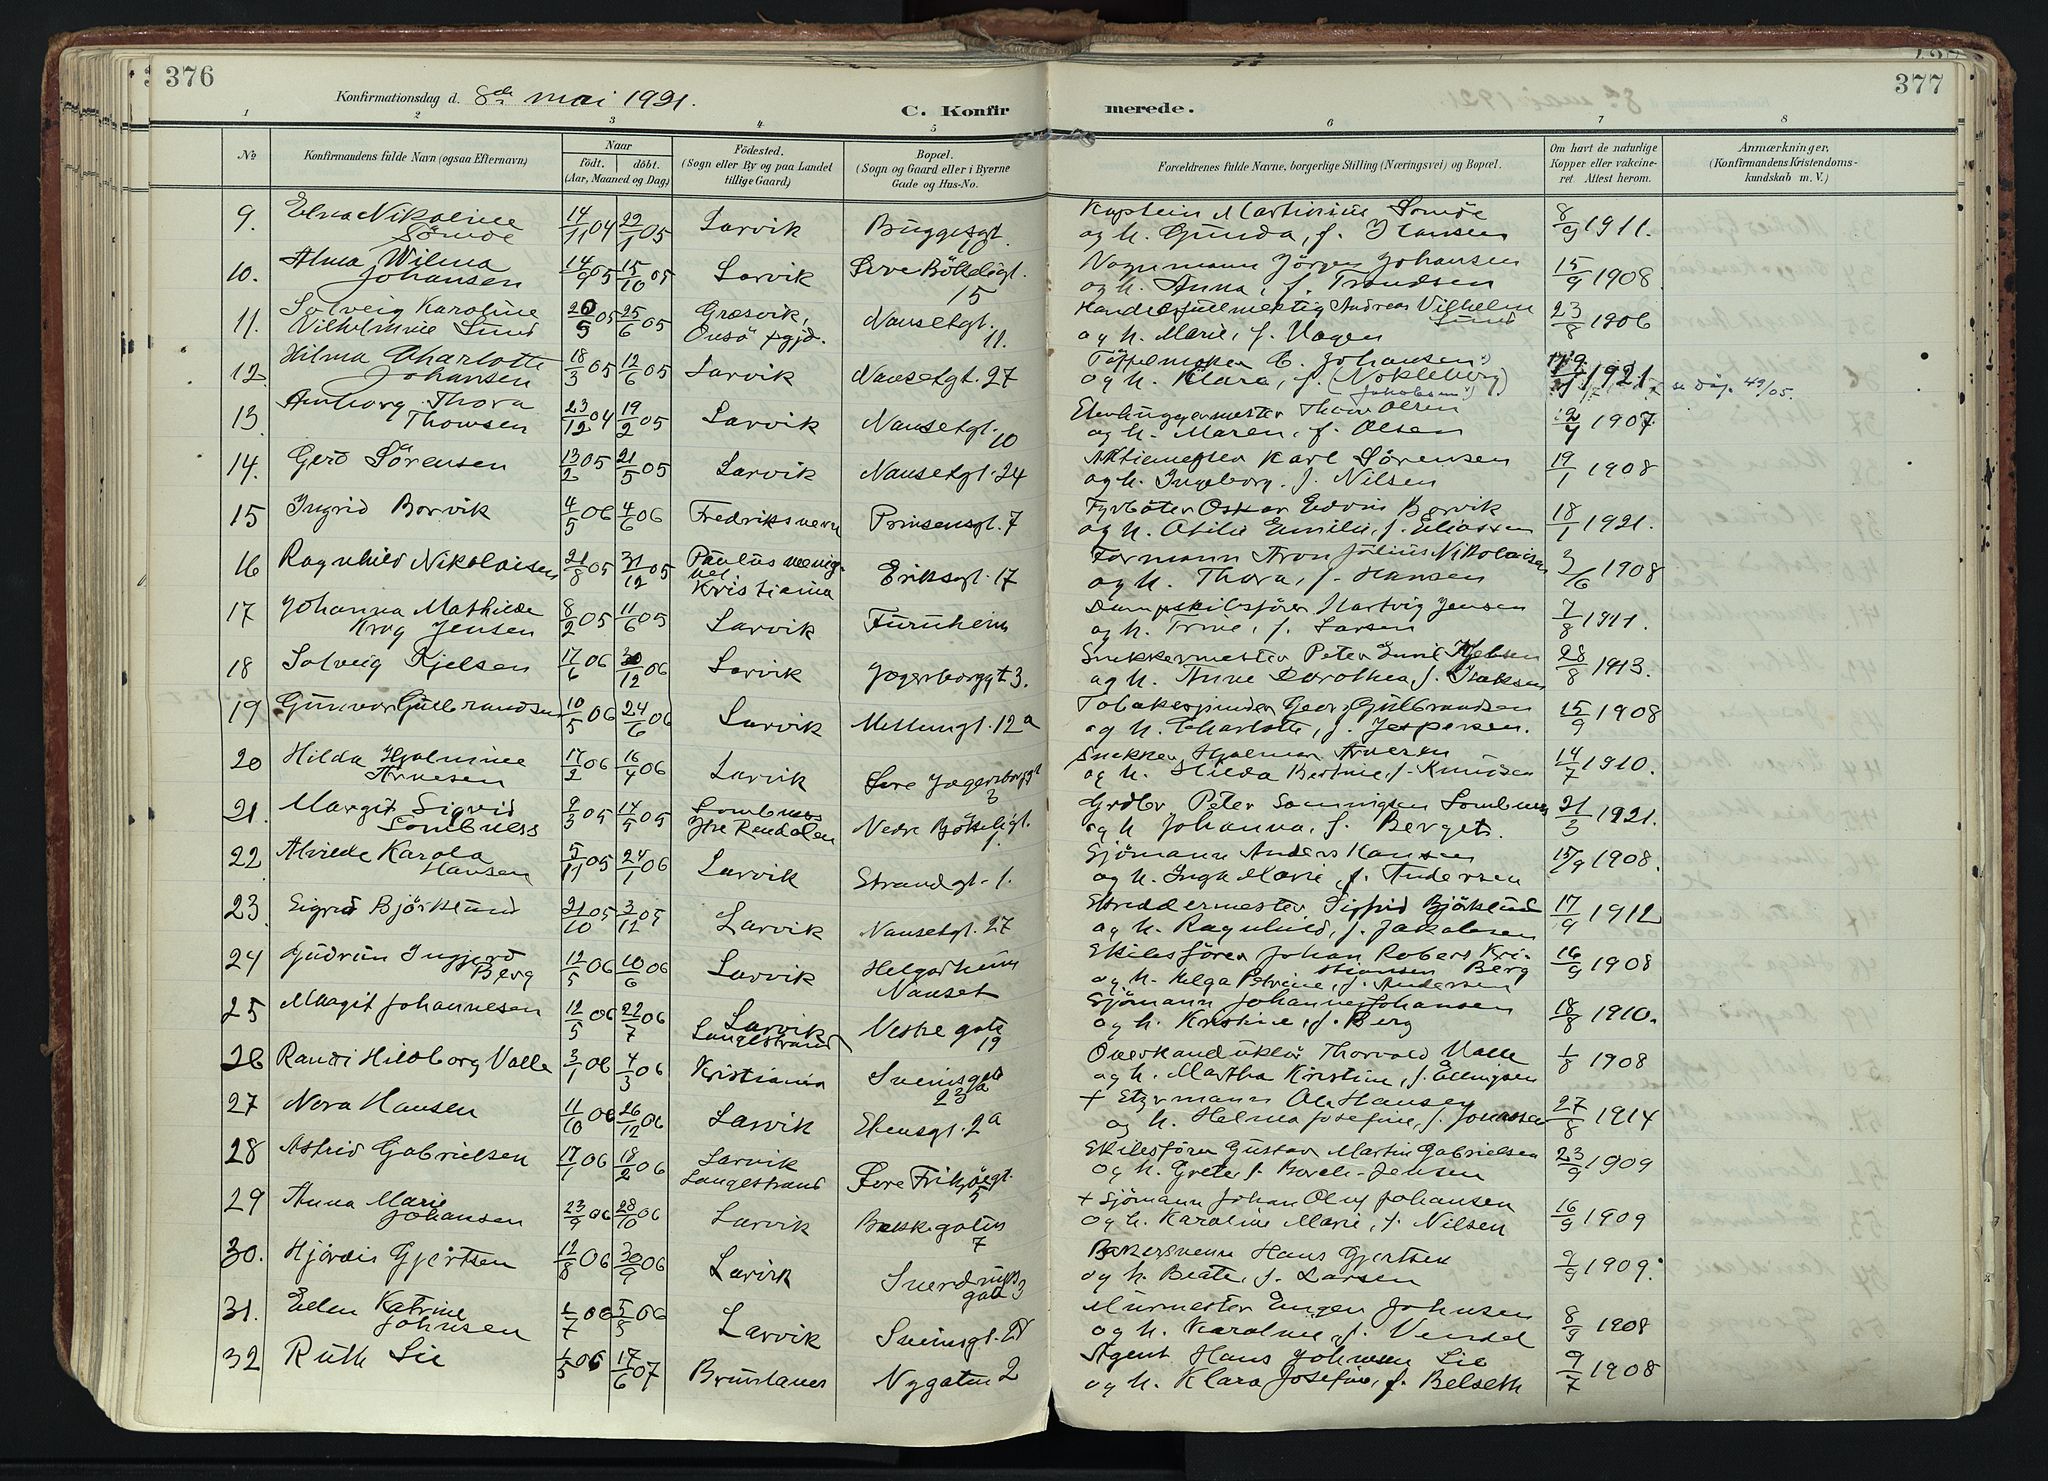 376
377
Konfirmationsdag d. 8de mai 1921.
C. Konfirmerede.
1 2 3 4 5 6 7 8
No
Konfirmandens fulde Navn (ogsaa Efternavn)
Naar
Födt. döbt.
(Aar, Maaned og Dag)
Födested.
(Sogn eller By og paa Landet
tillige Gaard)
Bopæl.
(Sogn og Gaard eller i Byerne
Gade og Hus-No.
Forældrenes fulde Navne, borgerlige Stilling (Næringsvei) og Bopæl.
Om havt de naturlige
Kopper eller vakcine-
ret. Attest herom.
Anmærkninger,
(Konfirmandens Kristendoms-
kundskab m. V.)
9. Elna Nikoline 14/11 04 22/1 05 Larvik Buggesgt. Kaptein Martinius Somöe 8/9 1911.
Sömöe og h. Gunda, f. Hansen
10. Alma Wilma 14/9 05 15/10 05 Larvik Sere Bökeligt. Vognmann Jörgen Johansen 15/9 1908
Johansen 15 og h. Anna, f. Trondsen
11. Solveig Karoline 20/5 05 25/6 05 Græsvik, Nansetgt. Handelsfuldmektig Andreas Vilhelm 23/8 1906
Vilhelmine Lund Onsö +gjd. 11. Lund
og h. Marie, f. Hagen
12. Hilma Charlotte 18/3 05 12/6 05 Larvik Nansetgt. 27 Töffelmaker C. Johansen 1921 se dåp. 49/05.
Johansen og h. Klara, f. (Nökleberg)
(Jakobsen)
13. Amborg Thora 23/12 04 19/2 05 Larvik Nansetgt. Thowsen Olsen 1907
Thowsen 10 og h. Maren, f. Olsen
14. Gerd Sörensen 13/2 05 21/5 05 Larvik Nansetgt. 24 Karl Sörensen 19/1 1908
og h. Ingeborg, f. Nilsen
15 Ingrid Borvik 4/5 06 4/6 06 Fredriksvern Prinsensgt. 7 Fyrböter Oskar Edvin Borvik 18/1 1921.
og h. Otilie Emilie, f. Eliassen
16 Ragnhild Nikolaisen 21/8 05 31/12 05 Paulus menig- Eriksgt. 17 Formann Aron Julius Nikolaisen 3/6 1908
het og h. Thora, f. Hansen
Kristiania
17 Johanna Mathilde 8/2 05 11/6 05 Larvik Furuheim Dampskibsförer Hartvig Jensen 7/8 1911.
Krog Jensen og h. Trine, f. Larsen
18 Solveig Kjelsen 17/6 06 30/12 06 Larvik Jegersborggt 3. Snekkermester Peter Emil Kjelsen 28/8 1913.
og h. Anne Dorothea, f. Isaksen
19 Gunvor Gulbrandsen 10/5 06 24/6 06 Larvik Mellumgt. 12a Tobakspinder Georg Gulbrandsen 15/9 1908
og h. Charlotte, f. Jespersen.
20 Hilda Hjalmine 17/2 06 16/4 06 Larvik Sere Jegersborggt Snekker Hjalmar Arnesen 14/7 1910.
Arnesen 3 og h. Hilda Bertine, f. Knudsen
21. Margit Sigrid 9/3 05 14/5 05 Lombnes Nedre Bökeligt. Grdbr. Peter Lombnes 21/3 1921.
Lombness Ytre Rendalen 1. og h Johanna, f. Berget.
22 Alvilde Karola 5/11 05 24/1 06 Larvik Strandgt. 1. Sjömann Anders Hansen 15/9 1908.
Hansen og h. Inga Marie, f. Andersen
23. Sigrid Björklund 21/10 05 3/12 05 Larvik Nansetgt. 27 Skreddermester Sigfrid Björklund 17/9 1912
og h. Ragnhild, f. Jakobsen
24 Gudrun Ingjerd 12/5 06 10/6 06 Larvik Helgarheim Skibsförer Johan Robert Kri- 16/9 1908
Berg Nanset stiansen Berg
og h. Helga Petrine, f. Andersen
25 Margit Johannesen 12/5 06 22/7 06 Larvik Vestre gate Sjömann Johannes Johansen 18/8 1910.
Langestrand 19 og h. Kristine, f. Berg
26 Randi Hildborg Valle 3/1 06 4/3 06 Kristiania Sveinsgate Overkonduktör Thorvald Valle 1/8 1908
23a og h. Martha Kristine, f. Ellingsen
27 Nora Hansen 11/10 06 26/12 06 Larvik Stensgt. 2a + Styrmann Ole Hansen 27/8 1914
og h. Helma Josefine, f. Jonassen
28 Astrid Gabrielsen 17/1 06 18/2 06 Larvik Sere Fritzöegt. Skibsförer Gustav Martin Gabrielsen 23/9 1909
Langestrand 5 og h. Grete f. Borch-Jensen
29 Anna Marie 23/9 06 28/10 06 Larvik Bekkegaten + Sjömann Johan Oluf Johansen 16/9 1909
Johansen 7 og h. Karoline Marie, f. Nilsen
30. Hjördis Gjertsen 12/8 06 30/9 06 Larvik Sverdrups Bakersvenn Hans Gjertsen 9/9 1909.
gate 3 og h. Beate, f. Larsen
31. Ellen Katrine 1/7 06 5/8 06 Larvik Sveinsgt. Murmester Eugen Johnsen 8/9 1908
Johnsen og h. Karoline, f. Vendel
32 Ruth Lie 1/5 06 17/6 07 Brunlanes Nygaten 2 Agent Hans Johnsen Lie 9/7 1908
og h. Klara Josefine, f. Belseth